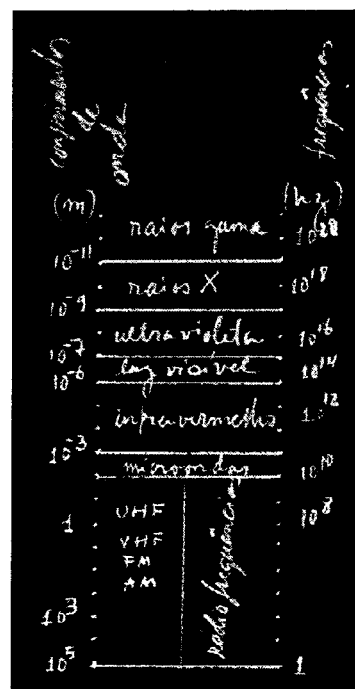 comprimento
de
onda
frequências
(m)
(hz)
raios gama
10²⁰
10⁻¹¹
raios X
10¹⁸
10⁻⁹
ultravioleta
10¹⁶
10⁻⁷
luz visível
10¹⁴
10⁻⁶
infravermelho
10¹²
10⁻³
microondas
10¹⁰
1
UHF
10⁸
VHF
FM
AM
rádio frequências
10³
10⁵
1